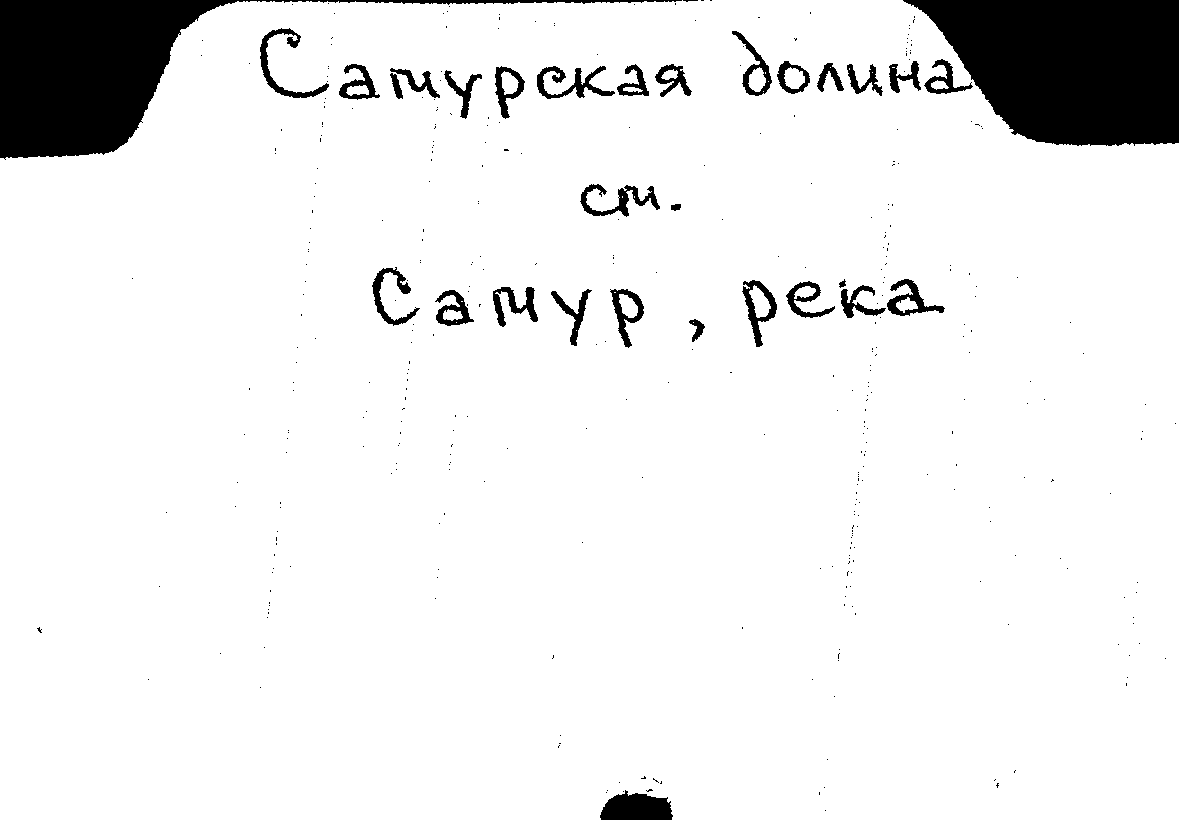 Самурская долина
см.
Самур, река